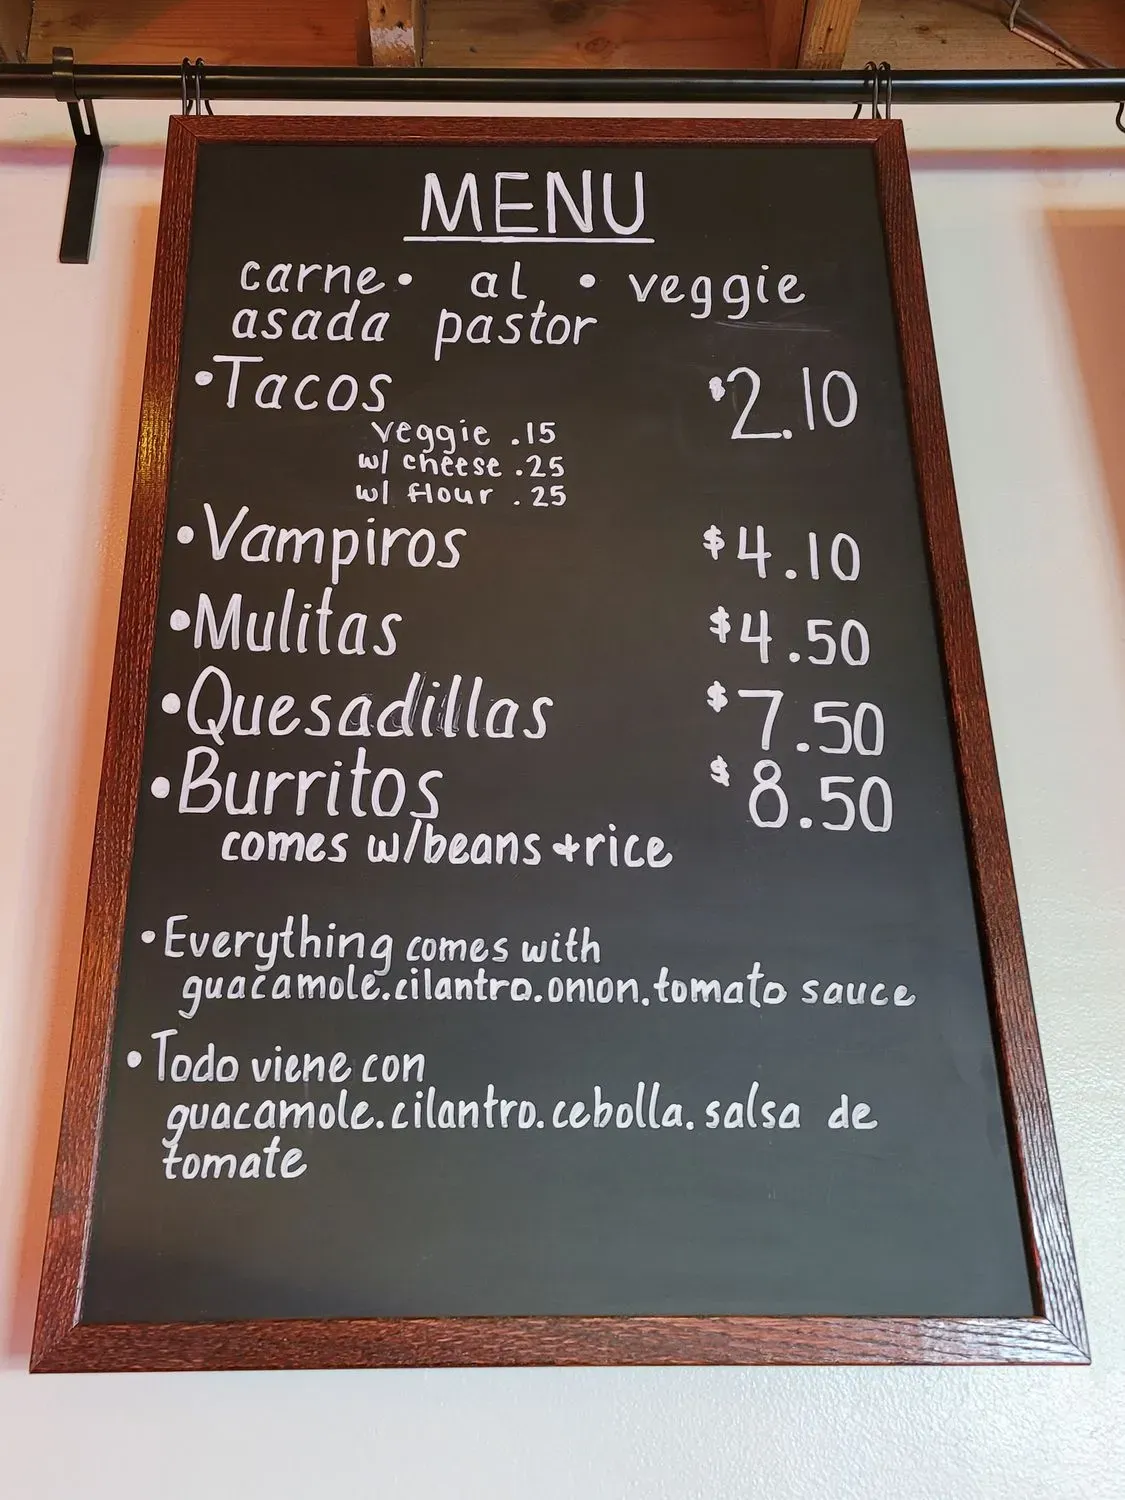 MENU
carne • al • veggie
asada pastor
•Tacos $2.10
veggie .15
w/ cheese .25
w/ flour .25
•Vampiros $4.10
•Mulitas $4.50
•Quesadillas $7.50
•Burritos $8.50
comes w/beans +rice
•Everything comes with
guacamole.cilantro.onion.tomato sauce
•Todo viene con
guacamole.cilantro.cebolla.salsa de
tomate